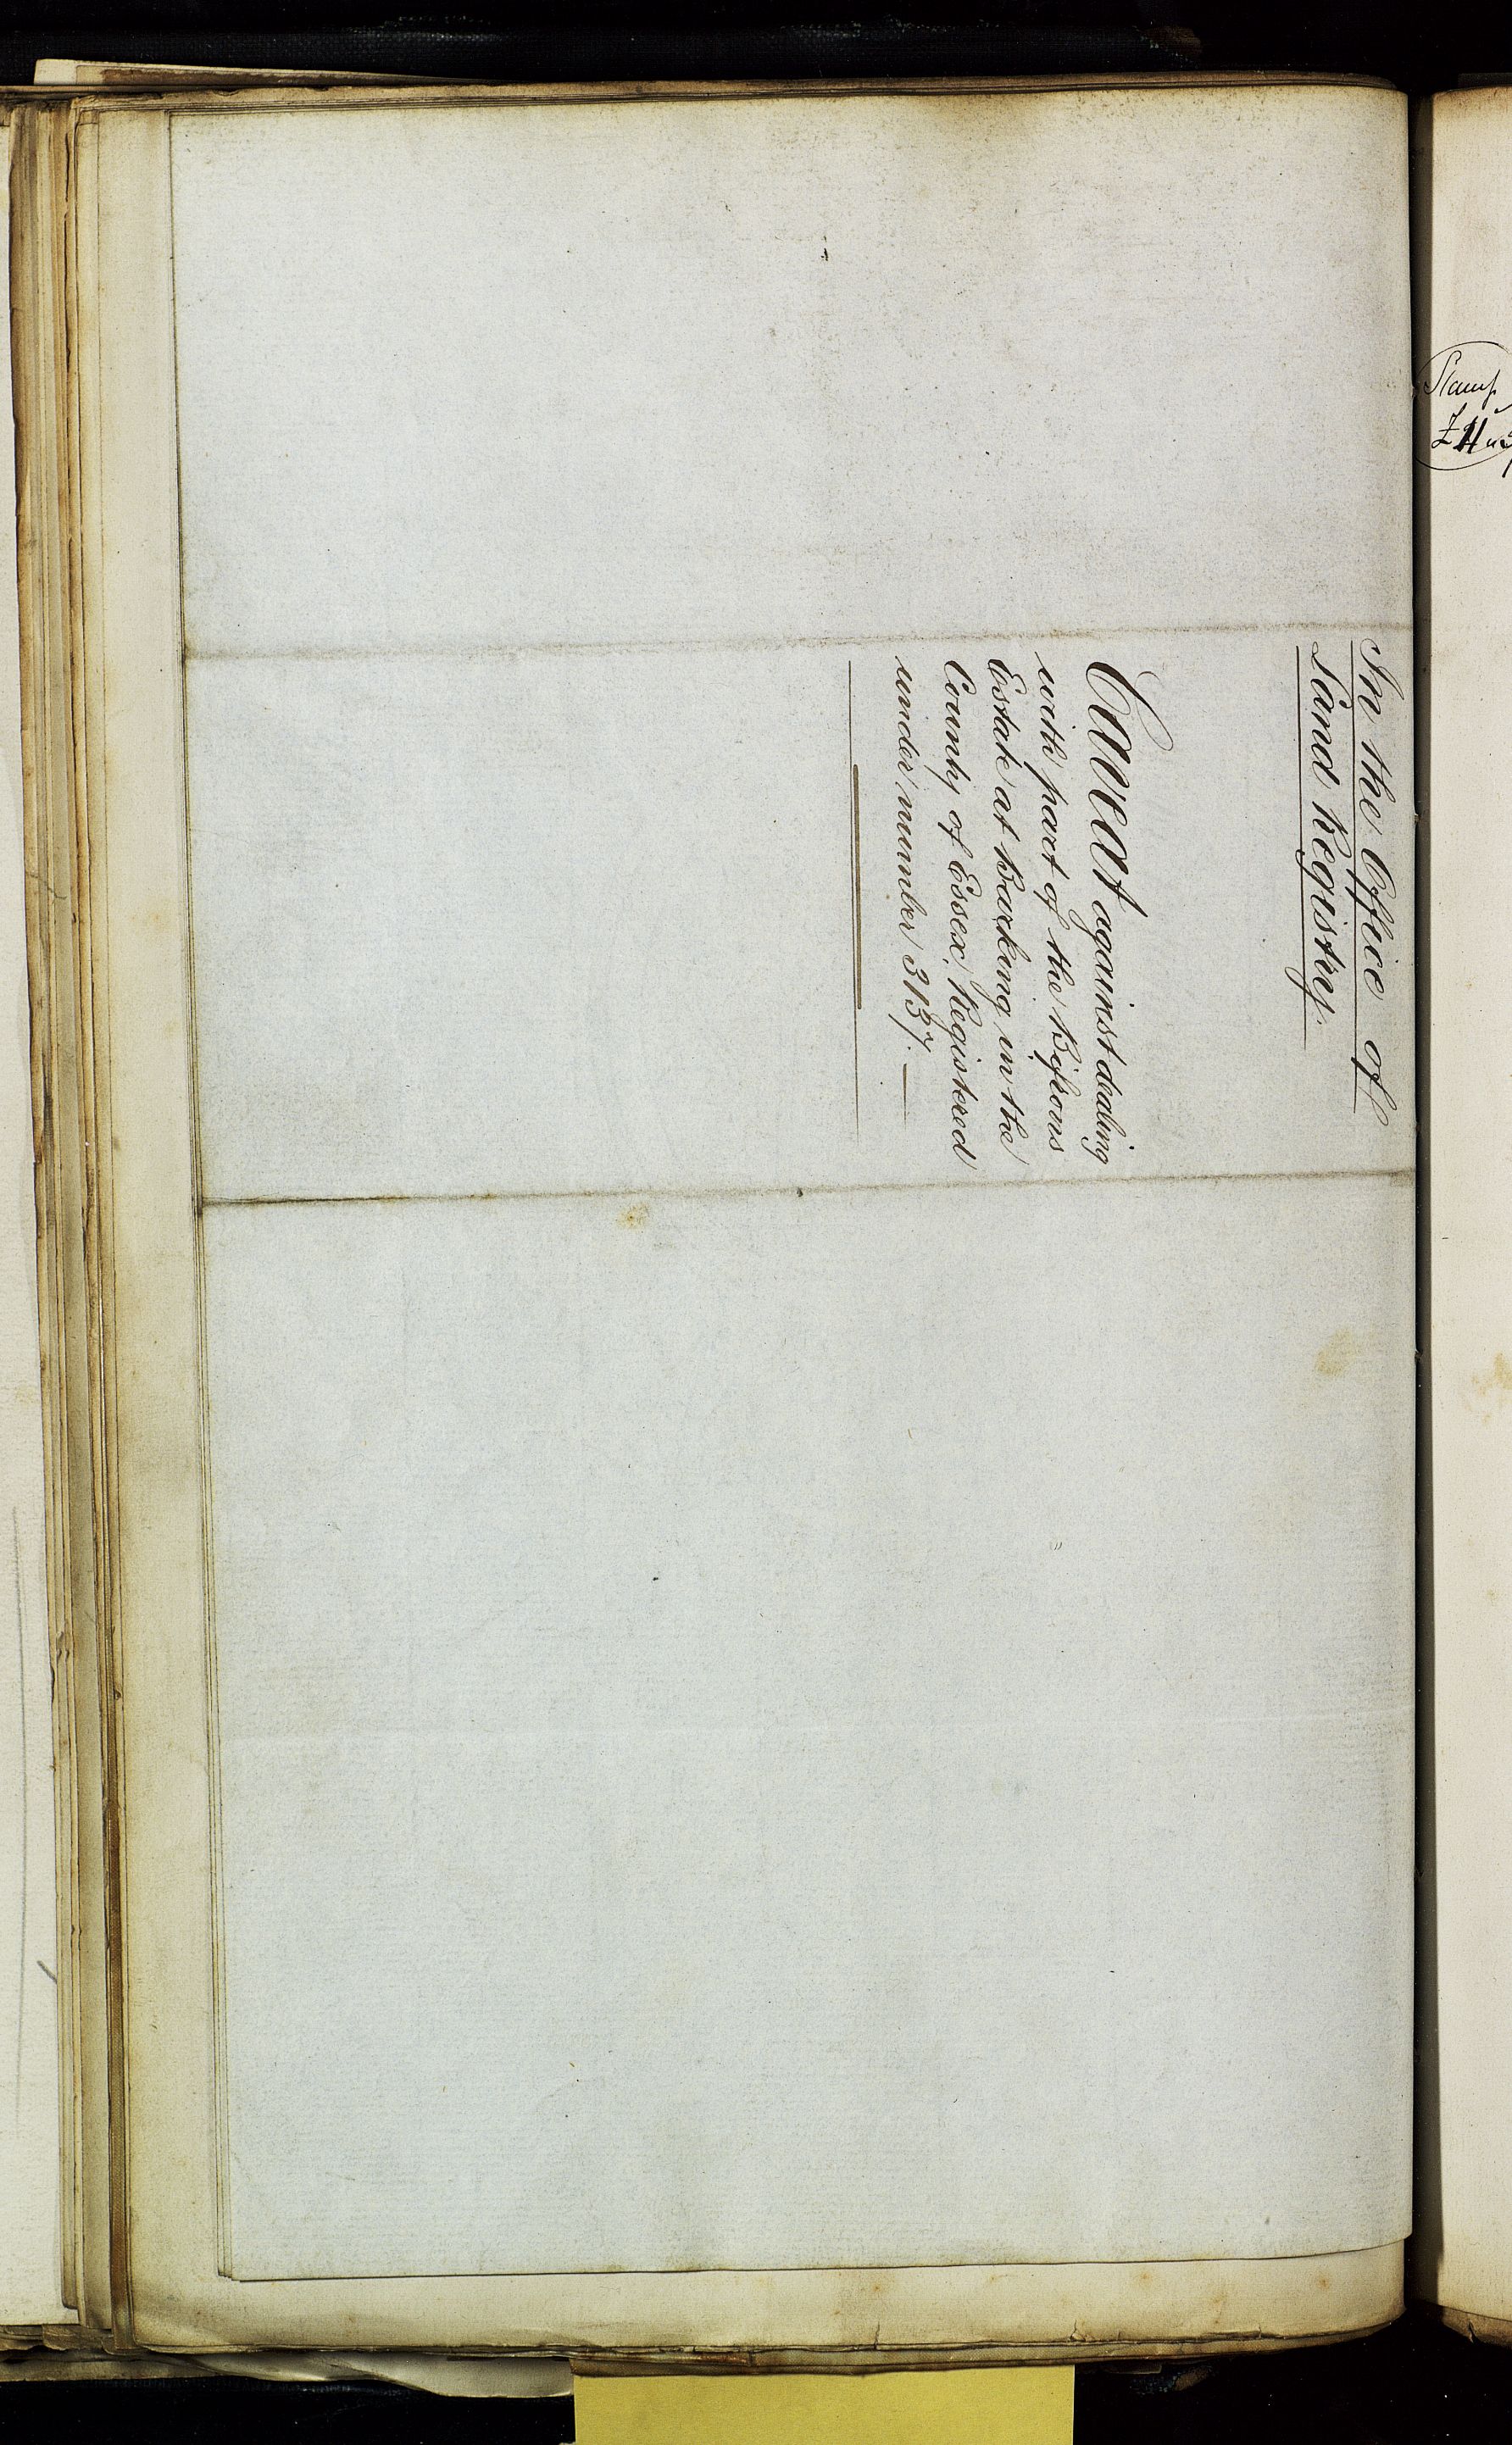 In the Office of
Land Registry.
Caveat against dealing
with part of the Bifrons
Estate at Barking in the
County of Essex, Registered
under number 3137. —
Stamp